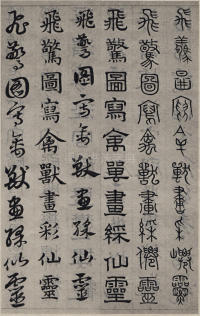 飛驚圖寫禽獸畫綵仙靈
飛驚圖寫禽獸畫綵僊靈
飛驚圖寫禽獸畫綵仙靈
飛驚圖寫禽獸畫綵仙靈
飛驚圖寫禽獸畫彩仙靈
飛驚圖寫禽獸畫綵仙靈